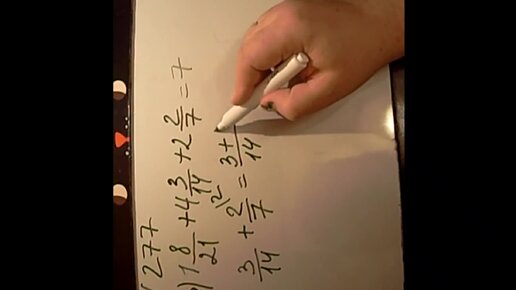 277
) 1 8/21 + 4 3/14 + 2 2/7 = 7
3/14 + 2/7 \2 = 3+/14